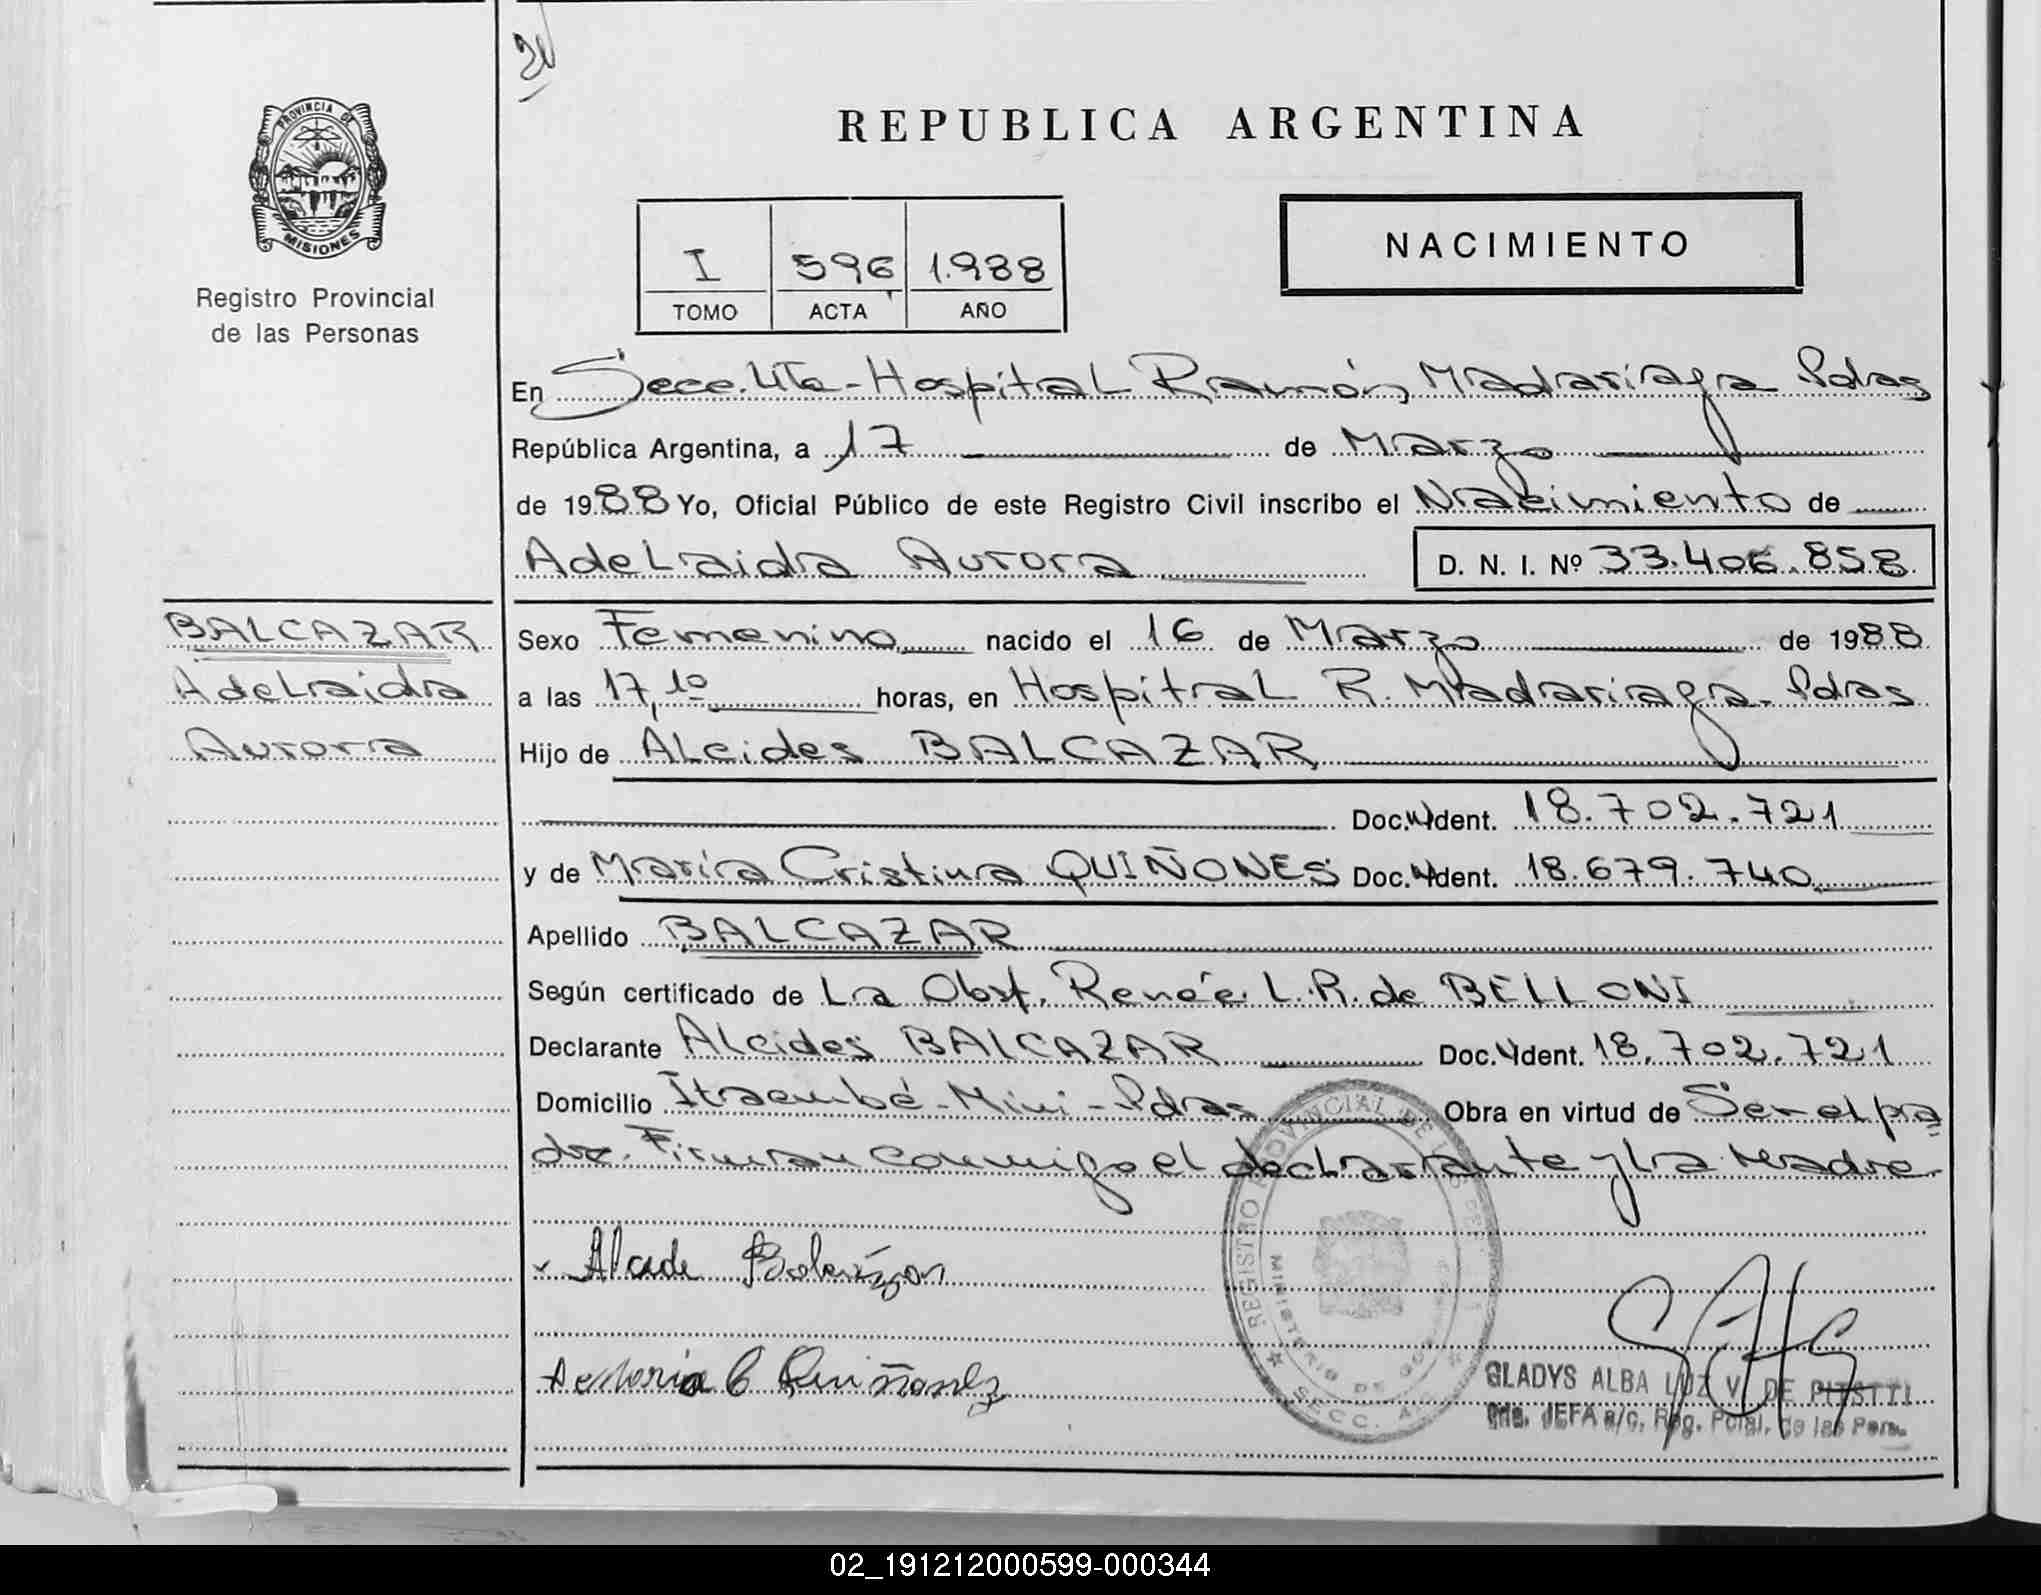 20
PROVINCIA DE
MISIONES
Registro Provincial
de las Personas
REPUBLICA ARGENTINA
NACIMIENTO
I 596 1.988
TOMO ACTA AÑO
En Secc. 4ta - Hospital Ramón Madariaga Pdas
República Argentina, a 17 de Marzo
de 1988 Yo, Oficial Público de este Registro Civil inscribo el Nacimiento de
Adelaida Aurora D. N. I. Nº 33.406.858
BALCAZAR
Adelaida
Aurora
Sexo Femenino nacido el 16 de Marzo de 1988
a las 17,10 horas, en Hospital R. Madariaga - Pdas
Hijo de Alcides BALCAZAR
Doc. Ident. 18.702.721
y de María Cristina QUIÑONES Doc. Ident. 18.679.740
Apellido BALCAZAR
Según certificado de La Obst. Renée L. R. de BELLONI
Declarante Alcides BALCAZAR Doc. Ident. 18.702.721
Domicilio Itaembé - Mini - Pdas Obra en virtud de Ser el pa
dre. Firman conmigo el declarante y la Madre
REGISTRO PROVINCIAL DE LAS PERS
MINISTERIO DE GOBIERNO
SECC.
Quiñonez
GLADYS ALBA LUZ V. DE
JEFA a/c. Reg. Pcial. de las Pers.
02_191212000599-000344